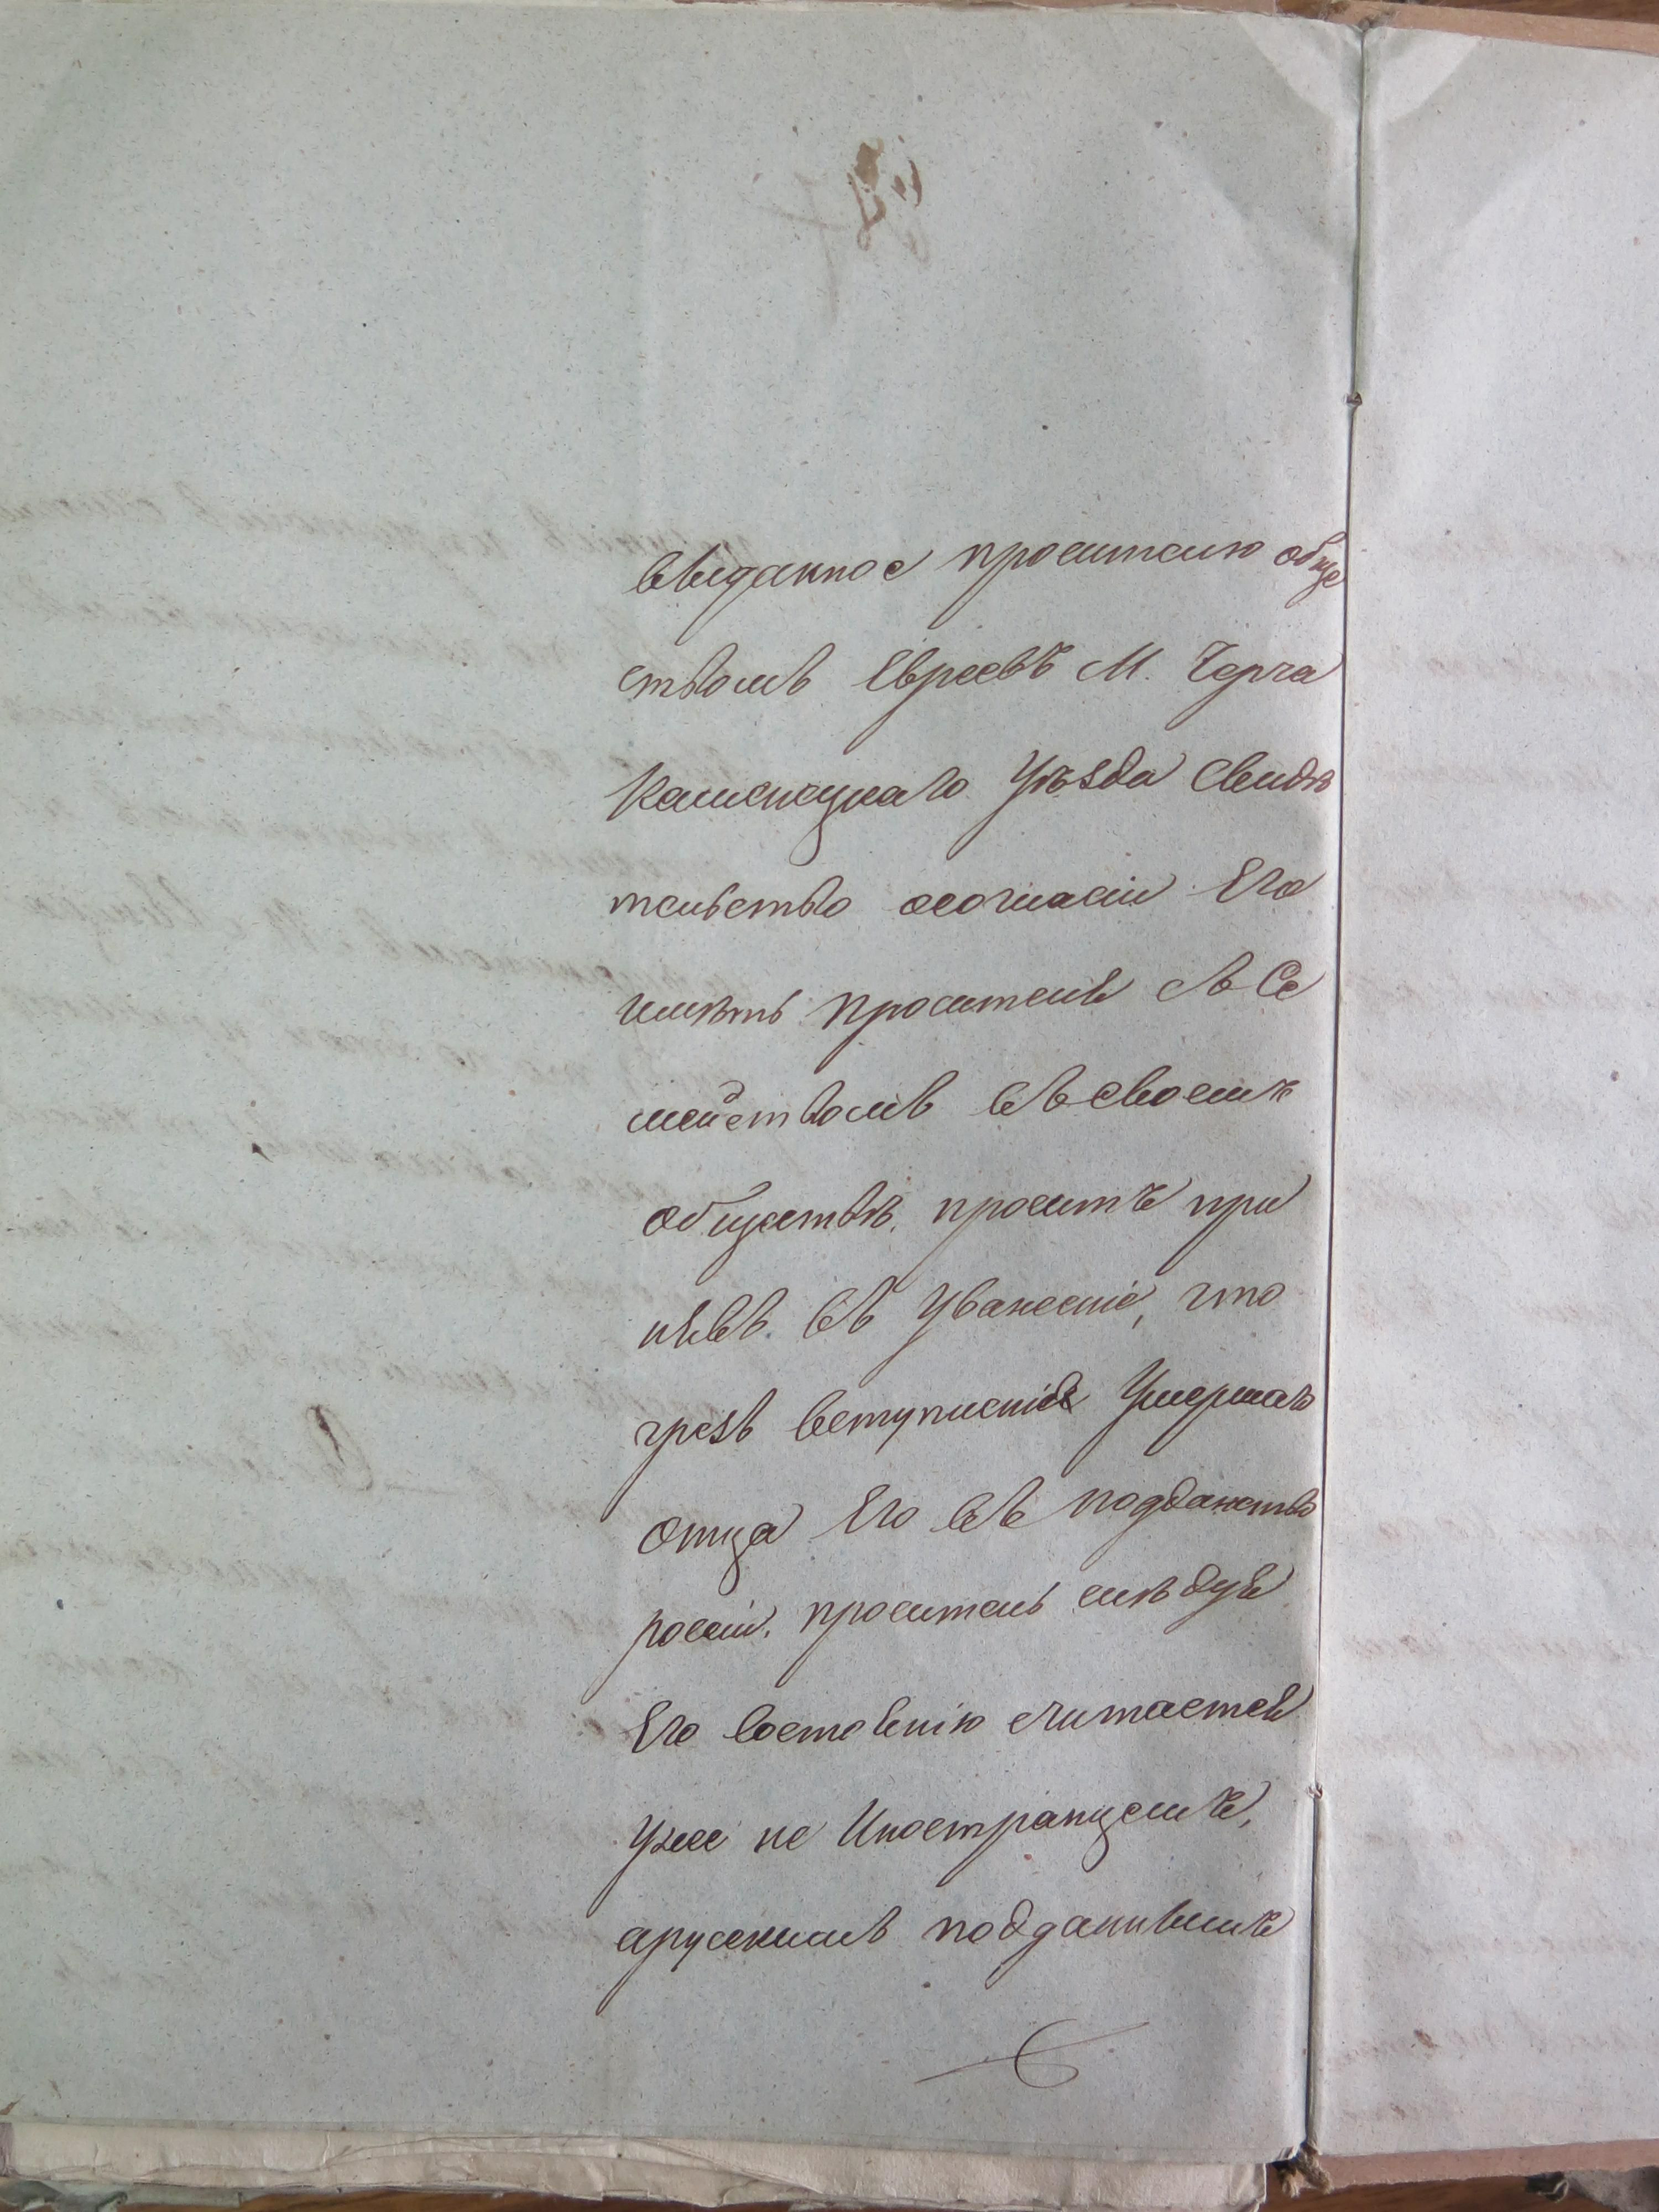 выданное просителю обще
ствомъ Евреевъ М. Черча
Каменецкаго Уѣзда Свидѣ
тельство осогласіи Его
имѣть просителя съ Се
мействомъ въ своемъ
обществѣ, проситъ при
нявъ въ Уваженіе, что
чрезъ вступленіе Умершаго
отца Его въ подданство
россіи, проситель слѣдуя
Его состоянію считается
уже не Иностранцемъ,
арускимъ подданнымъ